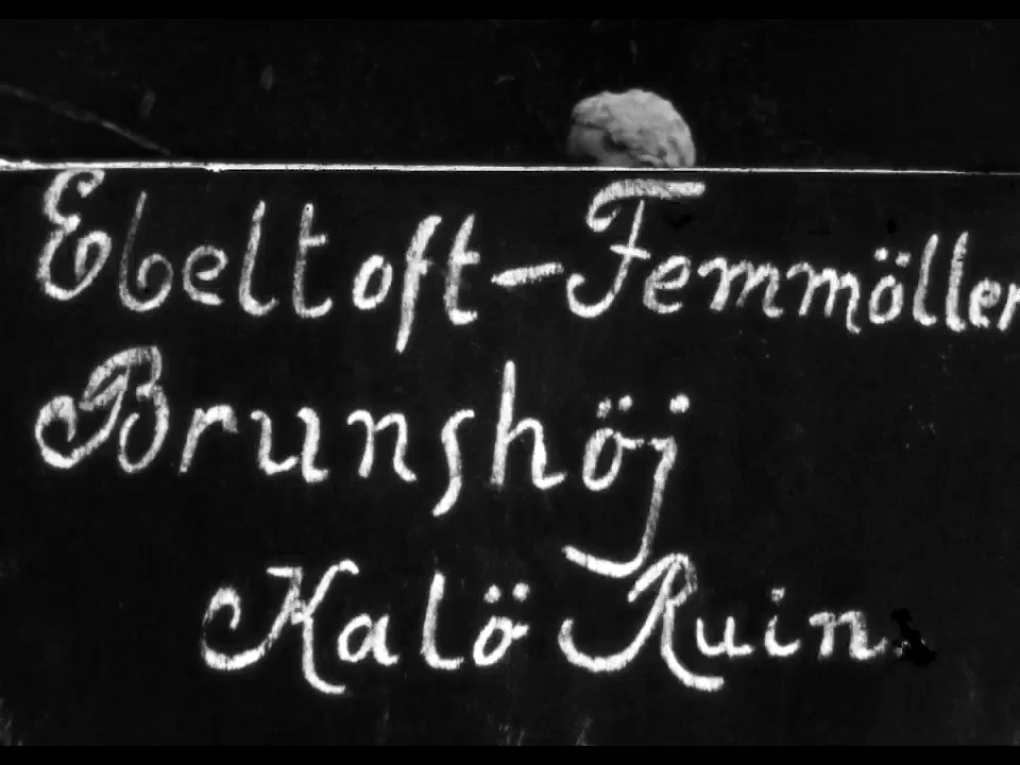 Ebeltoft-Femmöller
Brunshöj
Kalö Ruin.